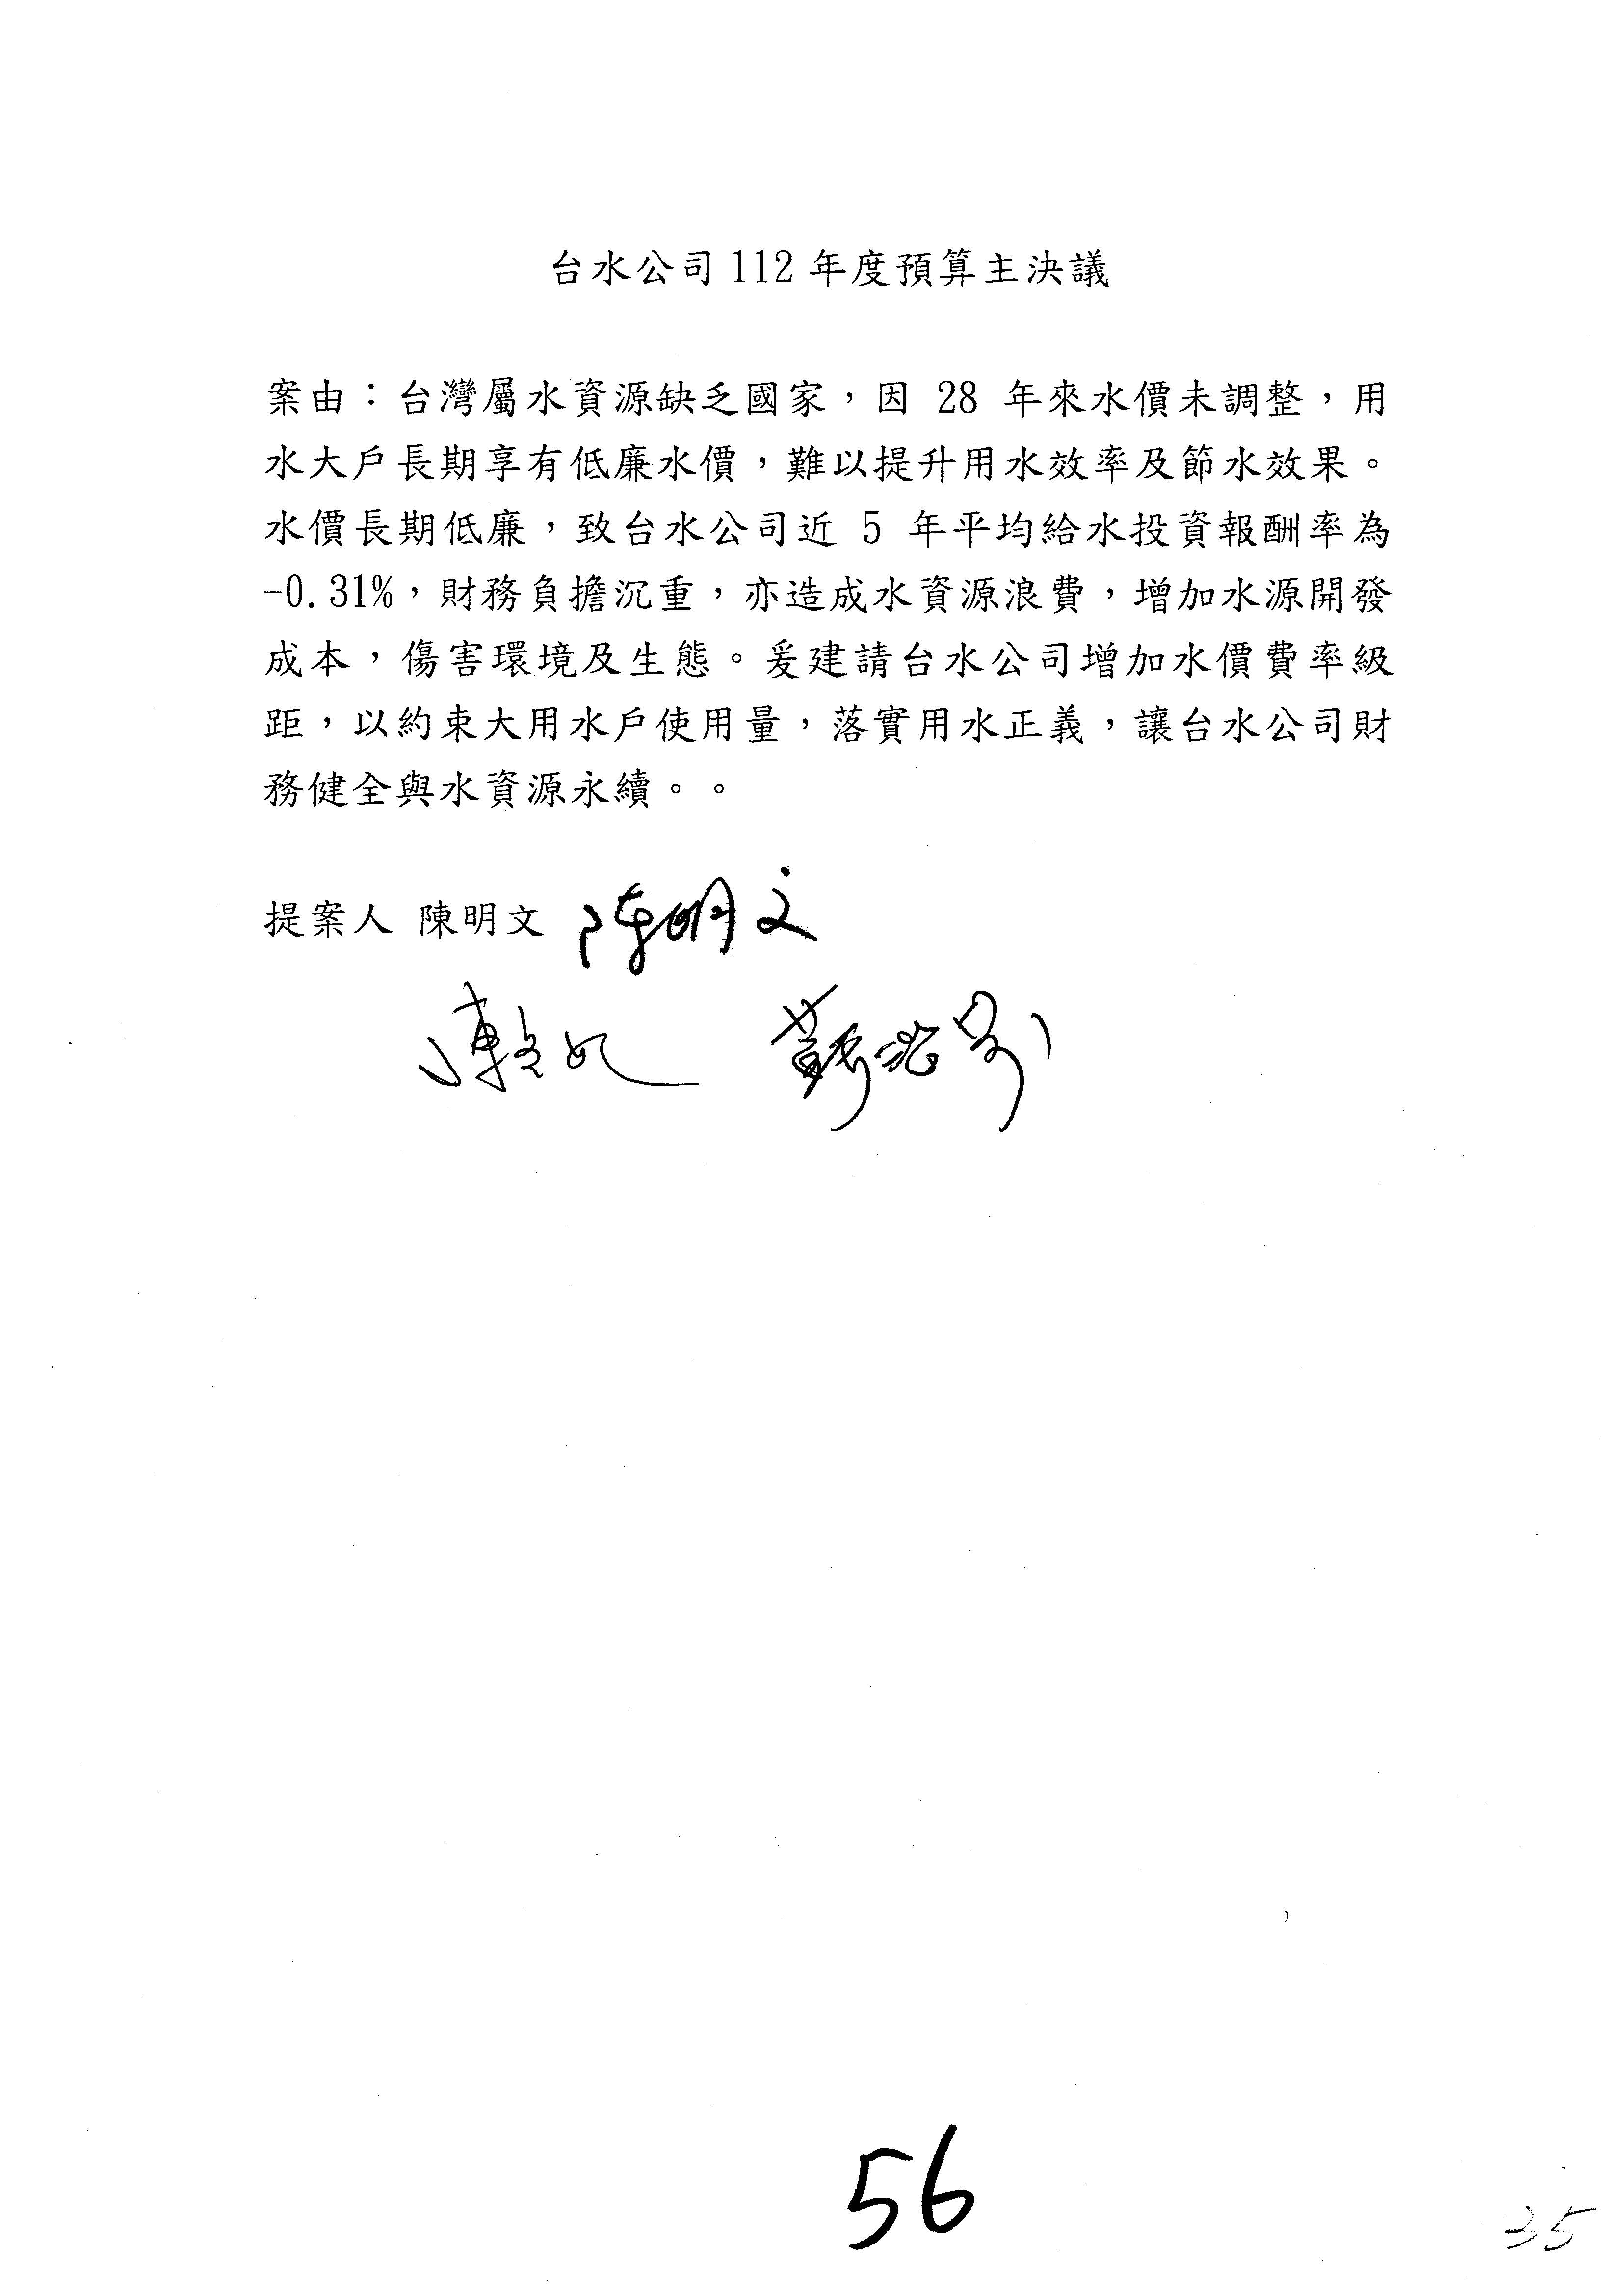 台水公司112年度預算主決議
案由：台灣屬水資源缺乏國家，因 28 年來水價未調整，用
水大戶長期享有低廉水價，難以提升用水效率及節水效果。
水價長期低廉，致台水公司近 5 年平均給水投資報酬率為
-0.31%，財務負擔沉重，亦造成水資源浪費，增加水源開發
成本，傷害環境及生態。爰建請台水公司增加水價費率級
距，以約束大用水戶使用量，落實用水正義，讓台水公司財
務健全與水資源永續。。
提案人 陳明文 陳明文
蘇治芬
56
35